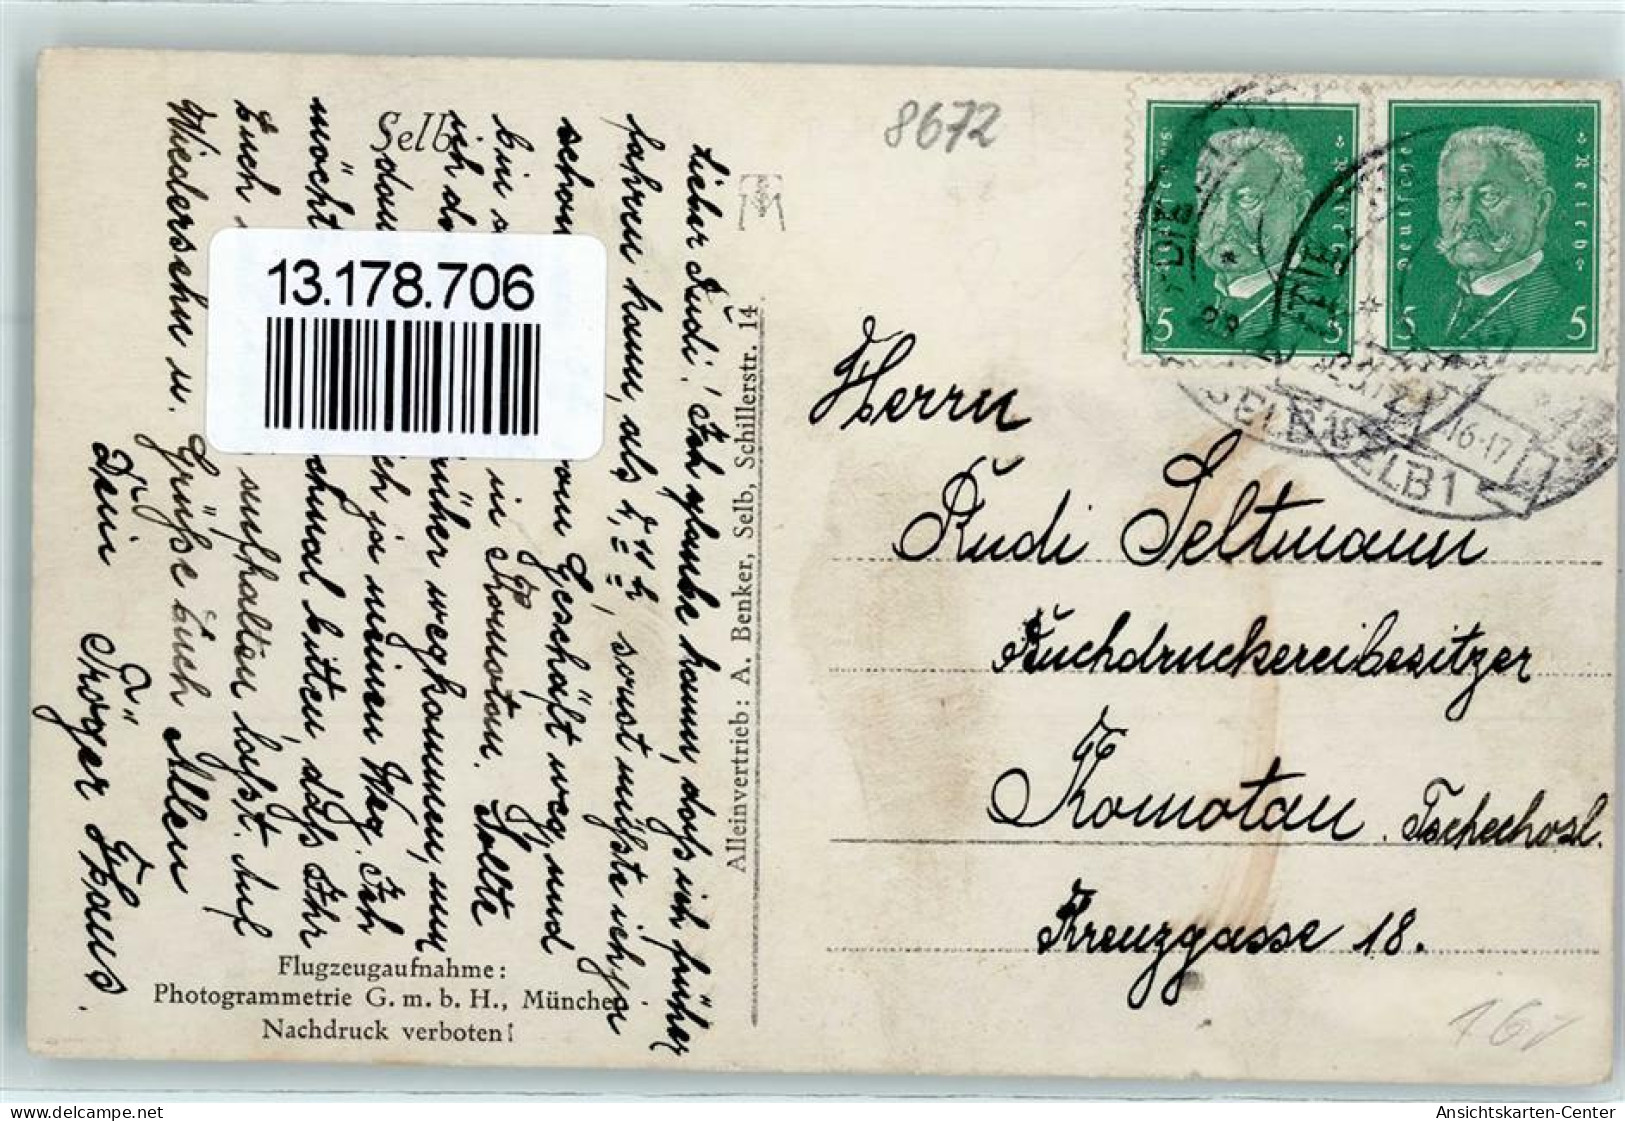 8672
Selb
Lieber Rudi! Ich glaube kaum, dass ich früher
fahren kann, als 4,11 h, sonst müsste ich ja
schon vom Geschäft weg und
bin in Komotau. Sollte
ich früher wegkommen, nun
dann ja meinen Weg. Ich
möcht bitten, dass Ihr
Euch aufhalten lasst. Auf
Wiedersehn u. Grüsse Euch Allen
Dein
Tröger Hans.
13.178.706
Alleinvertrieb: A. Benker, Selb, Schillerstr. 14
Flugzeugaufnahme:
Photogrammetrie G. m. b. H., München
Nachdruck verboten!
Deutsches Reich
5 5
Deutsches Reich
5 5
SELB 1
SELB 1
16-17
Herrn
Rudi Seltmann
Buchdruckereibesitzer
Komotau. Tschechosl.
Kreuzgasse 18.
delcampe.net
Ansichtskarten-Center